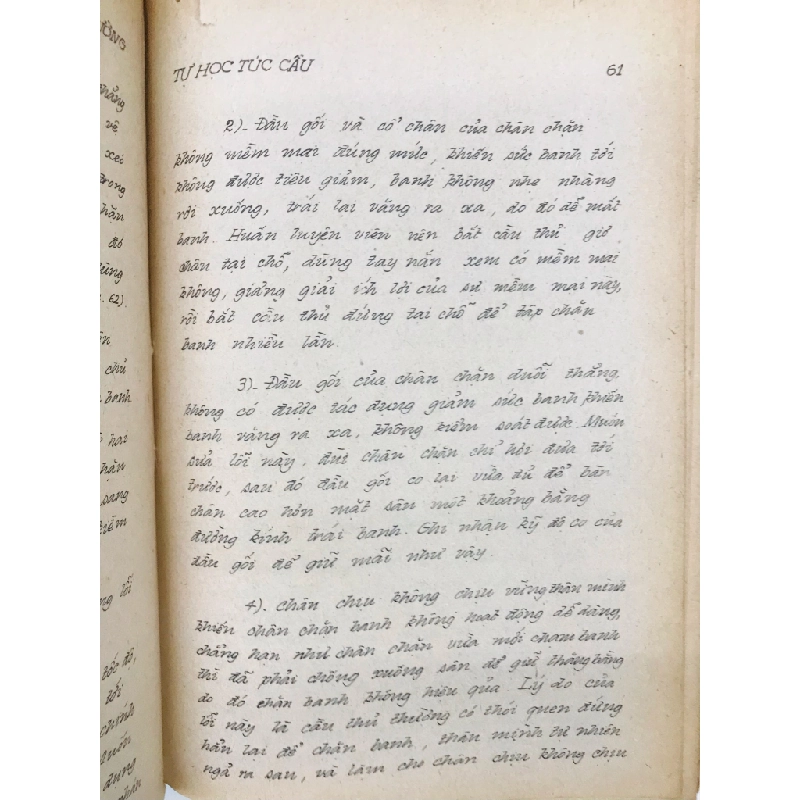 ƯỜNG
hẳng
về
xei
trong
hặn
đó
dùng
. 62).
ên
chủ
banh
hai
hận
sang
kiểm
ng lỗi
tốc độ,
tới
chính
muốn
dụng
TỰ HỌC TÚC CẦU 61
2)- Đầu gối và cổ chân của chân chặn
không mềm mại đúng mức, khiến sức banh tới
không được tiêu giảm, banh không nhẹ nhàng
rơi xuống, trái lại văng ra xa, do đó dễ mất
banh. Huấn luyện viên nên bắt cầu thủ giơ
chân tại chỗ, dùng tay nắn xem có mềm mại
không, giảng giải ích lợi của sự mềm mại này,
rồi bắt cầu thủ đứng tại chỗ để tập chặn
banh nhiều lần.
3)- Đầu gối của chân chặn duỗi thẳng,
không có được tác dụng giảm sức banh khiến
banh văng ra xa, không kiểm soát được. Muốn
sửa lỗi này, đùi chân chặn chỉ hơi đưa tới
trước, sau đó đầu gối co lại vừa đủ để bàn
chân cao hơn mặt sân một khoảng bằng
đường kính trái banh. Ghi nhận kỹ độ co của
đầu gối để giữ mãi như vậy.
4)- Chân chịu không chịu vững thân mình
khiến chân chặn banh không hoạt động dễ dàng,
chẳng hạn như chân chặn vừa mới chạm banh
thì đã phải chống xuống sân để giữ thăng bằng
do đó chặn banh không hiệu qủa. Lý do của
lỗi này là cầu thủ thường có thói quen đứng
hẳn lại để chặn banh, thân mình tự nhiên
ngả ra sau, và làm cho chân chịu không chịu